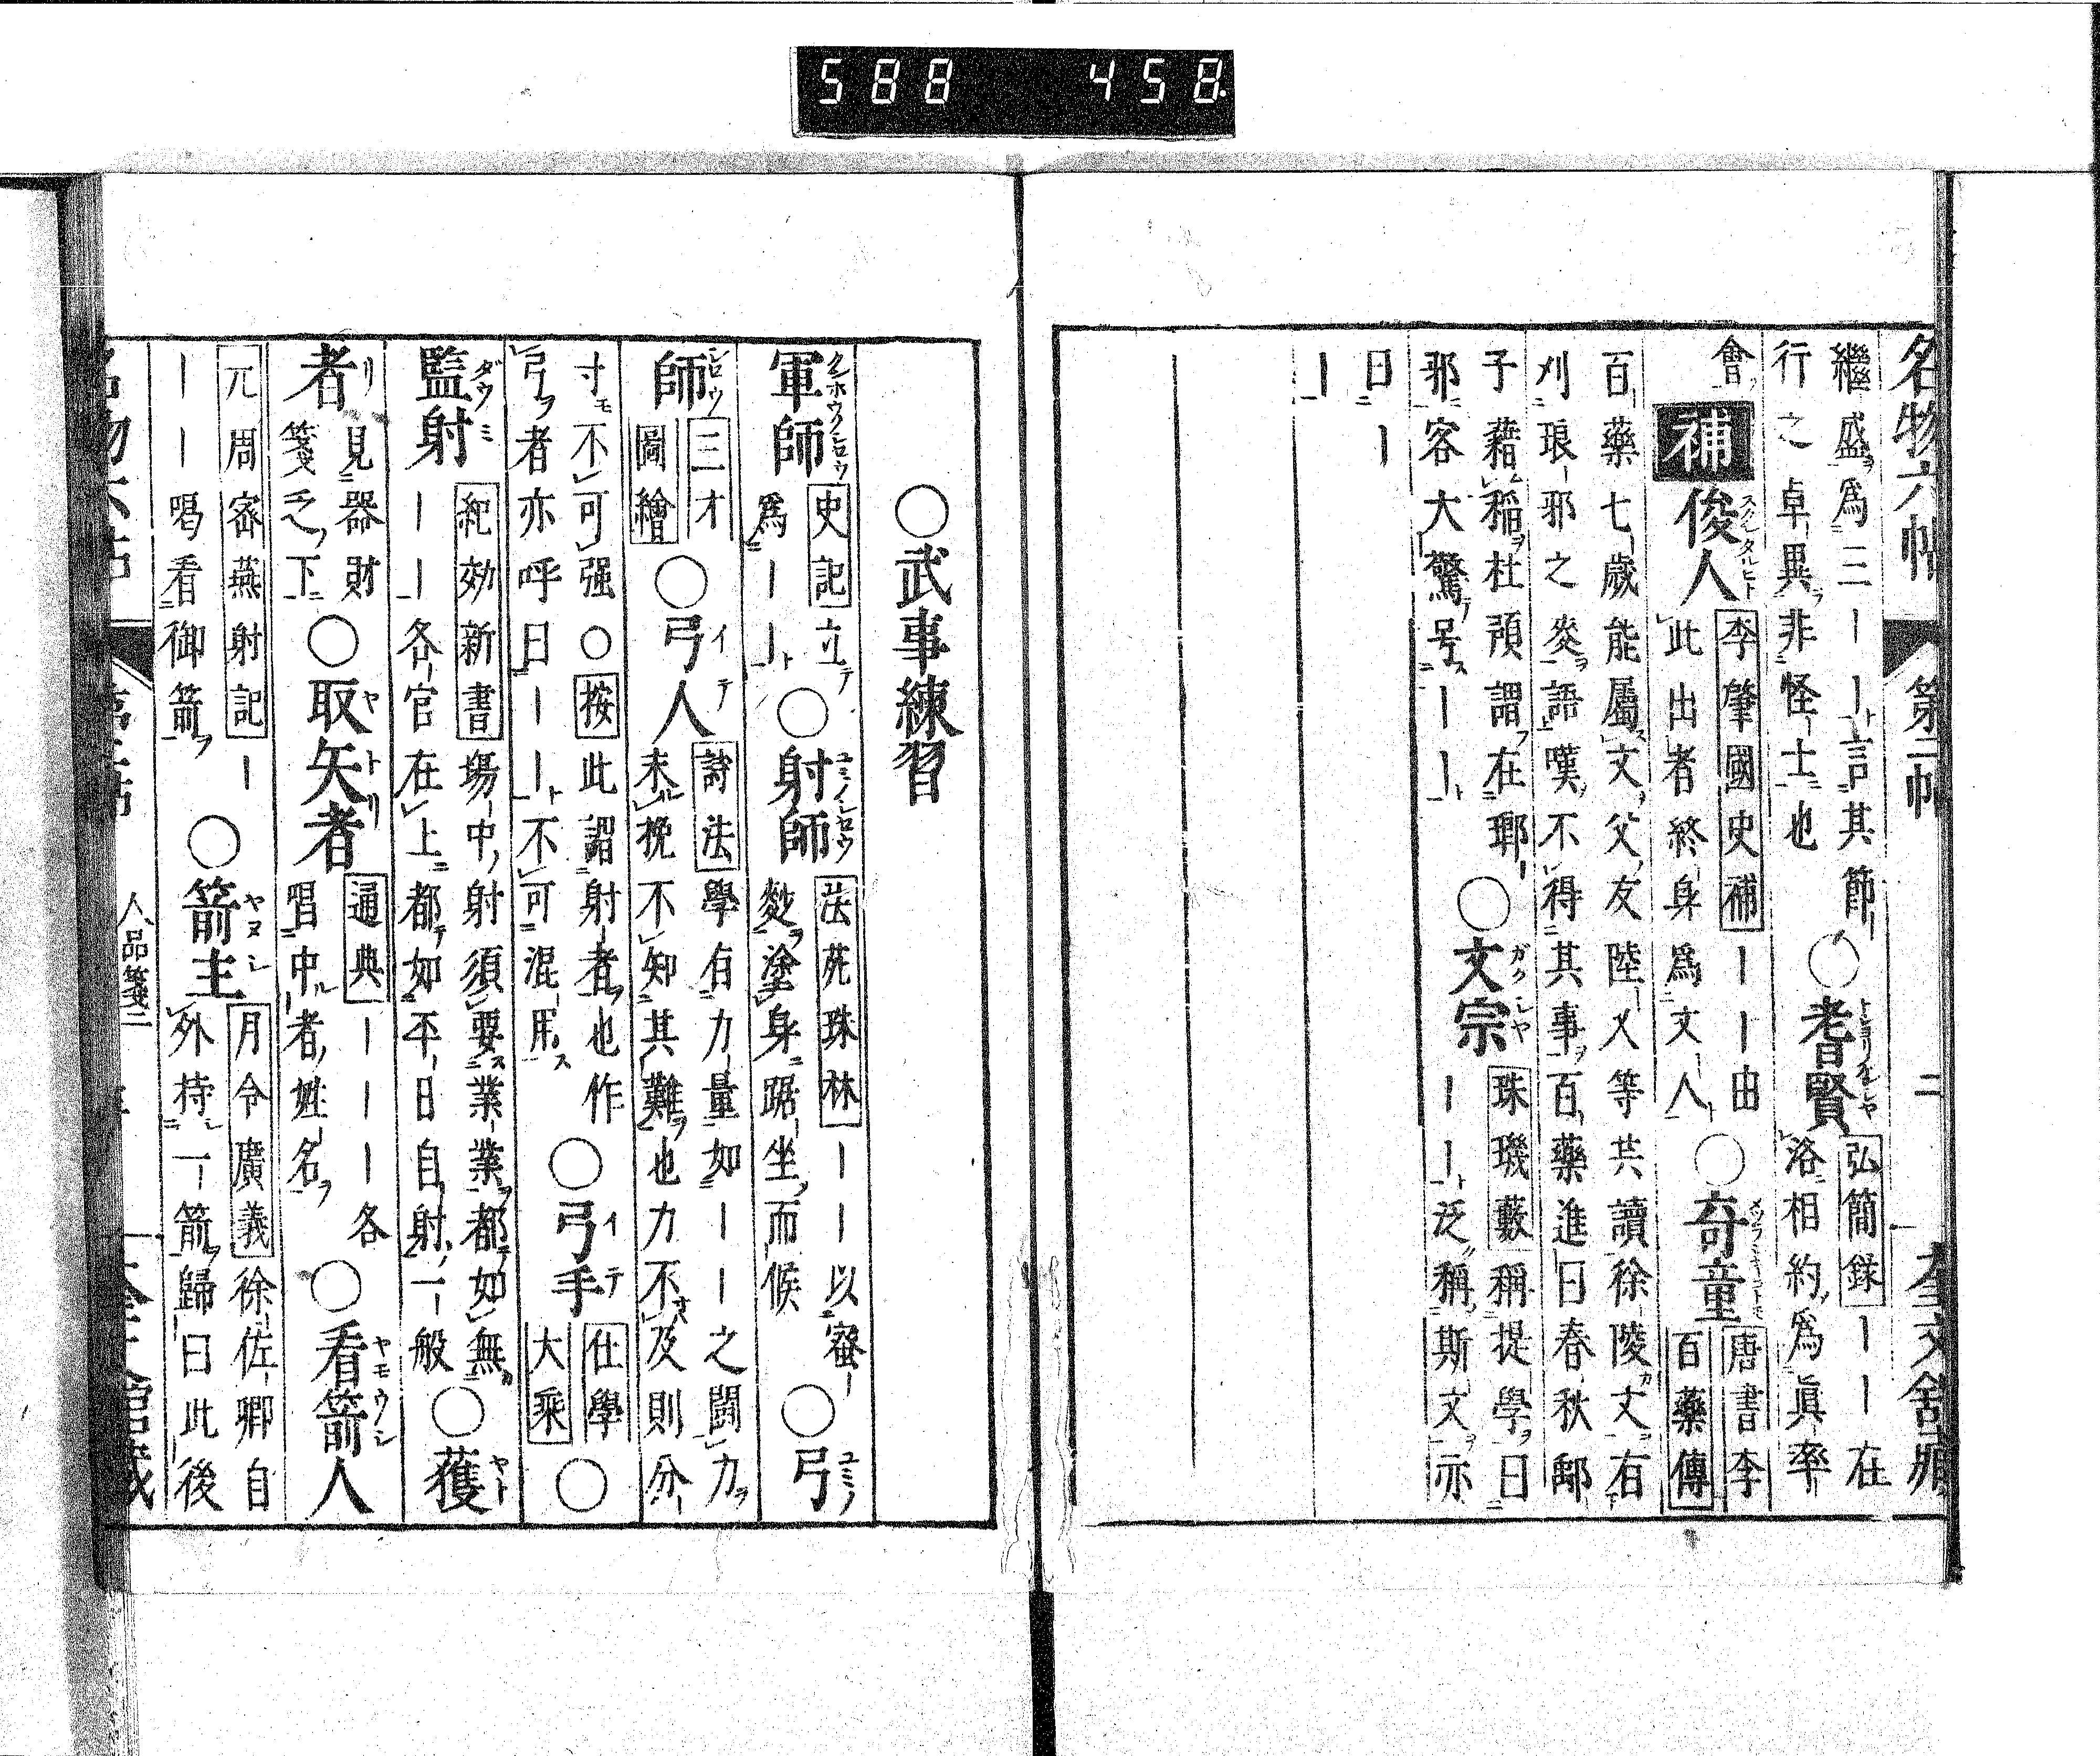 588 458
名物六帖 第二帖 二 奎文舘
繼盛ヲ爲三ーート言其節 ○耆賢 弘簡録 ーー在
行之卓異ヲ非怪士也 洛相約爲眞率
會 補 俊人 スグレタルヒト 李肇國史補 ーー由
此出者終身爲文人 ○奇童 唐書李
百藥傳
百藥七歳能屬文父友陸乂等共讀徐陵文有
刈琅邪之麥語嘆不得其事百藥進曰春秋鄅
子藉稲杜預謂在瑯 ○文宗 ガクシヤ 珠璣藪 稱提學曰
邪客大驚号ーー ーート泛稱斯文亦
曰ー
ー
○武事練習
軍師 史記 立テ ○射師 法苑珠林 ーー以蜜 ○弓
爲ーート 麨塗身踞坐而候
師 三才圖繪 ○弓人 イテ 詩法 學有力量如ーー之鬪力
未挽不知其難也力不及則分
寸モ不可强 ○按 此謂射者也作 ○弓手 イテ 仕學大乘 ○
弓ヲ者亦呼曰ーート不可混用
監射 紀効新書 塲中射須要業業都如無 ○蒦 ヤト
ーー各官在上都如平日自射一般
者 リ 見器財 ○取矢者 ヤトリ 通典 ーーー各 ○看箭人
箋乏下 唱中者姓名
元周密燕射記 ー ○箭主 ヤヌシ 月令廣義 徐佐卿自
ーー喝看御箭 外持一箭歸曰此後
人品箋二